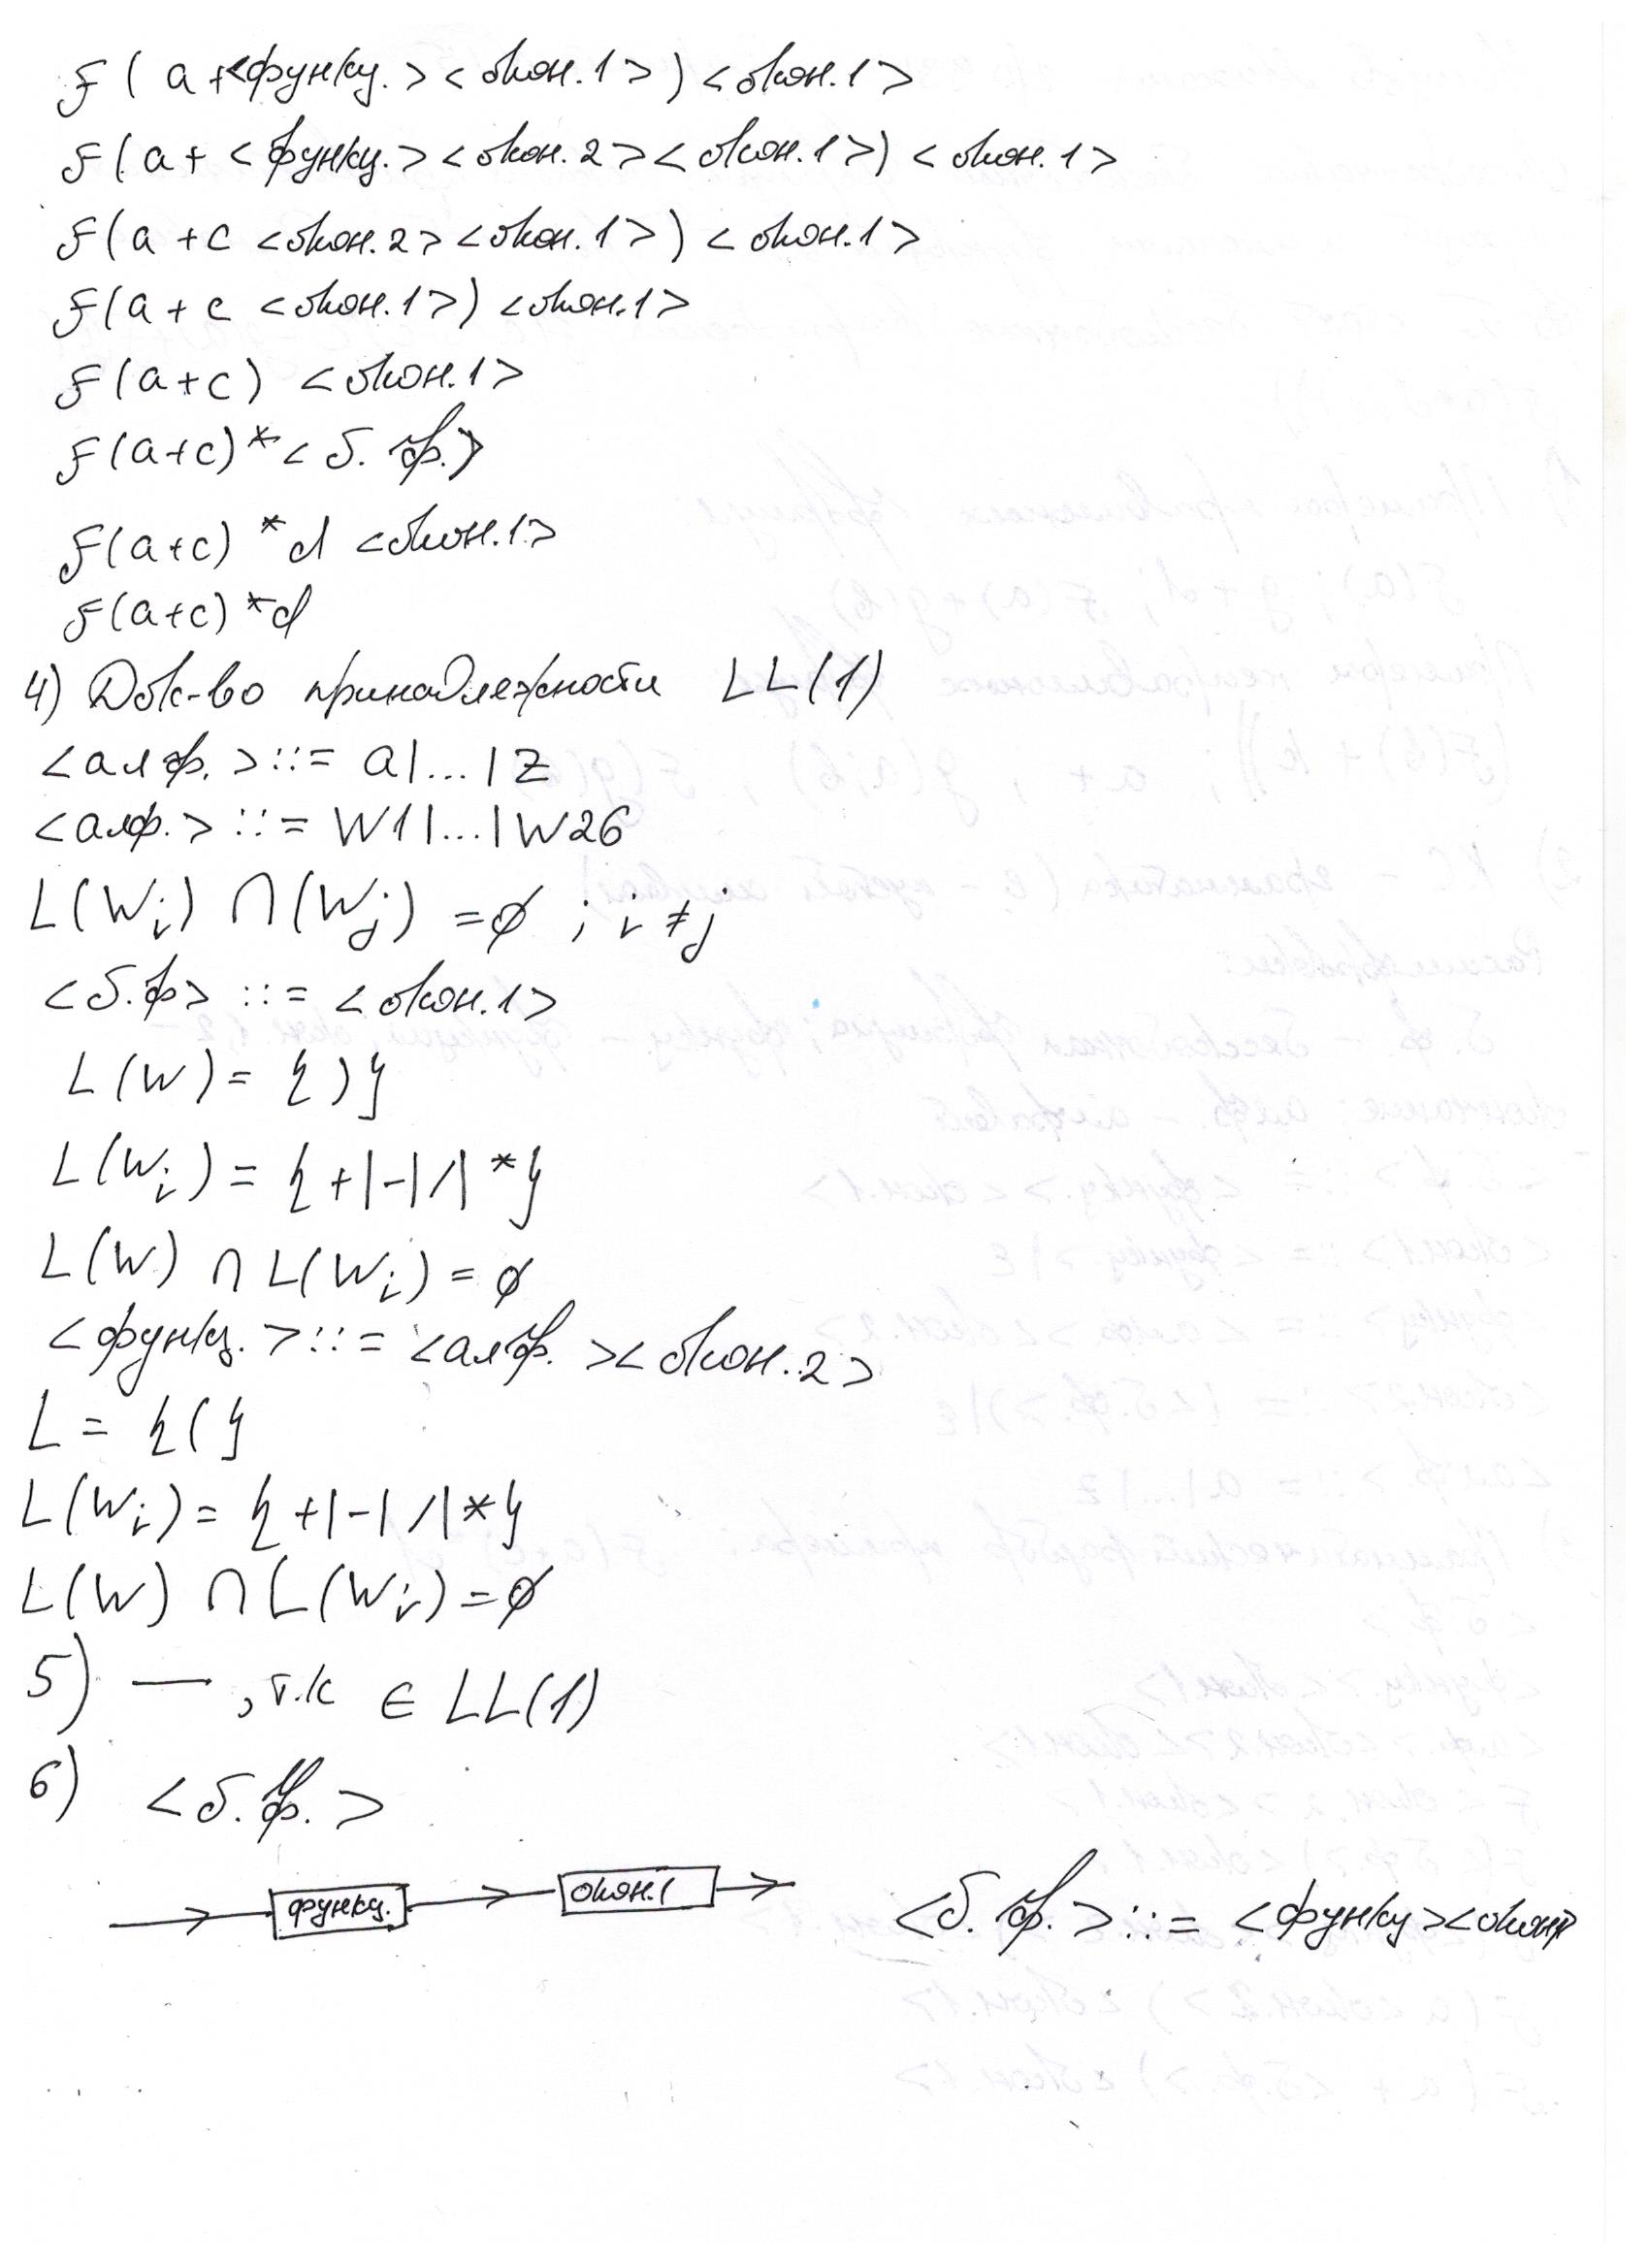 f ( a +<функц.> <окон.1>) <окон.1>
f(a + <функц.> <окон.2> <окон.1>) <окон.1>
f(a + c <окон.2> <окон.1>) <окон.1>
f(a + c <окон.1>) <окон.1>
f(a+c) <окон.1>
f(a+c)*<б.ф.>
f(a+c) *d <окон.1>
f(a+c)*d
4) Док-во принадлежности LL(1)
<алф.>::= a|...|z
<алф.> ::= W1|...|W26
L(Wi) ∩(Wj) =∅ ; i ≠j
<б.ф> ::= <окон.1>
L(W)= {)}
L(Wi) = {+|-|/|*}
L(W) ∩ L(Wi) = ∅
<функц.>::= <алф.><окон.2>
L = {(}
L(Wi)= {+|-|/|*}
L(W) ∩ L(Wi)=∅
5) — , т.к ∈ LL(1)
6) <б.ф.>
функц. окон.1 <б.ф.>::= <функц><окон>